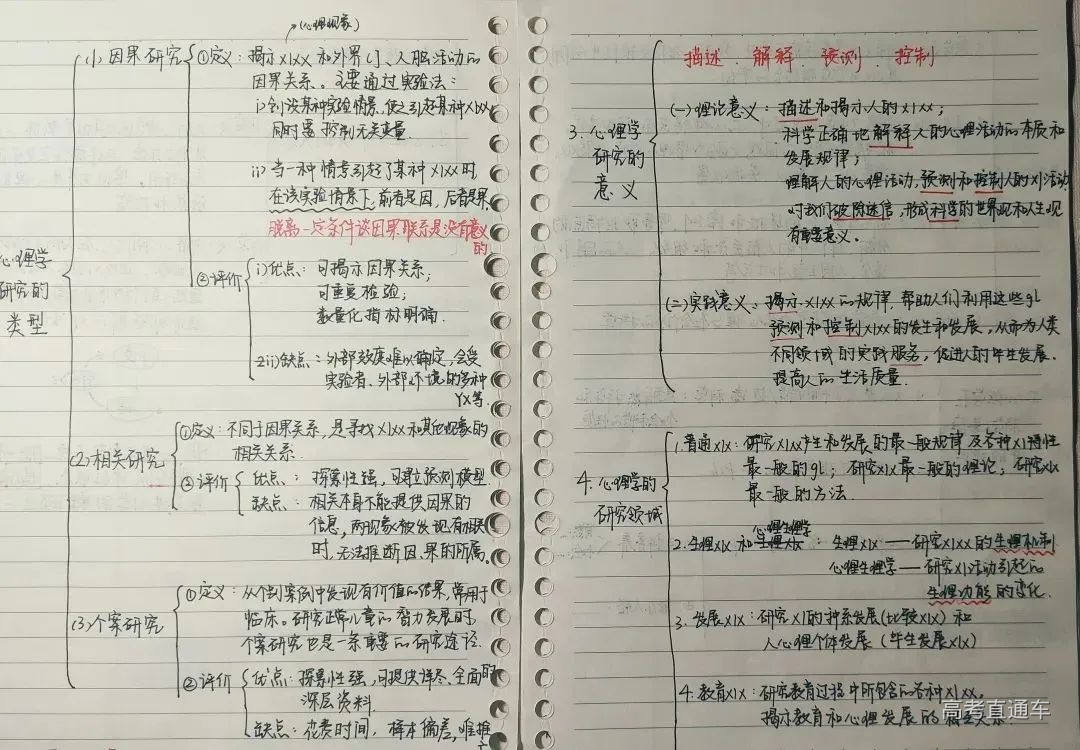 (心理现象)
(1)因果研究
①定义：揭示xlxx和外界cj、人脑活动的
因果关系。主要通过实验法：
i)创设某种实验情景，使之引起某种xlxx
同时需控制无关变量.
ii)当一种情考引起了某种xlxx时
在该实验情景下，前者是因，后者是果
脱离一定条件谈因果联系是没有意义
的
②评价
i)优点：可揭示因果关系；
可重复检验；
数量化指标明确.
ii)缺点：外部效度难以确定，会受
实验者、外部环境的多种
yx等.
心理学
研究的
类型
(2)相关研究
①定义：不同于因果关系，是寻找xlxx和其他现象的
相关关系.
②评价
优点：探索性强，可建立预测模型.
缺点：相关本身不能提供因果的
信息，两现象被发现有相关
时，无法推断因、果的所属。
(3)个案研究
①定义：从个别案例中发现有价值的结果，常用于
临床。研究正常儿童的智力发展时，
个案研究也是一条重要的研究途径.
②评价
优点：探索性强，可提供详尽、全面的
深层资料.
缺点：花费时间，样本偏差，难推
广
3.心理学
研究的
意义
描述、解释、预测、控制
(一)理论意义：描述和揭示人的xlxx；
科学正确地解释人的心理活动的本质和
发展规律；
理解人的心理活动，预测和控制人的xl活动
对我们破除迷信，形成科学的世界观和人生观
有重要意义。
(二)实践意义：揭示xlxx的规律，帮助人们利用这些gl
预测和控制xlxx的发生和发展，从而为人类
不同领域的实践服务，促进人的毕生发展.
提高人的生活质量.
4.心理学的
研究领域
1.普通xlx：研究xlxx产生和发展的最一般规律及各种xl特性
最一般的gl；研究xlx最一般的理论，研究xlx
最一般的方法.
心理生理学
2.生理xlx和生理xlx：生理xlx——研究xlxx的生理机制
心理生理学——研究xl活动引起的
生理功能的变化.
3.发展xlx：研究xl的种系发展(比较xlx)和
人心理个体发展(毕生发展xlx)
4.教育xlx：研究教育过程中所包含的各种xlxx。
揭示教育和心理发展的相互关系.
高考直通车